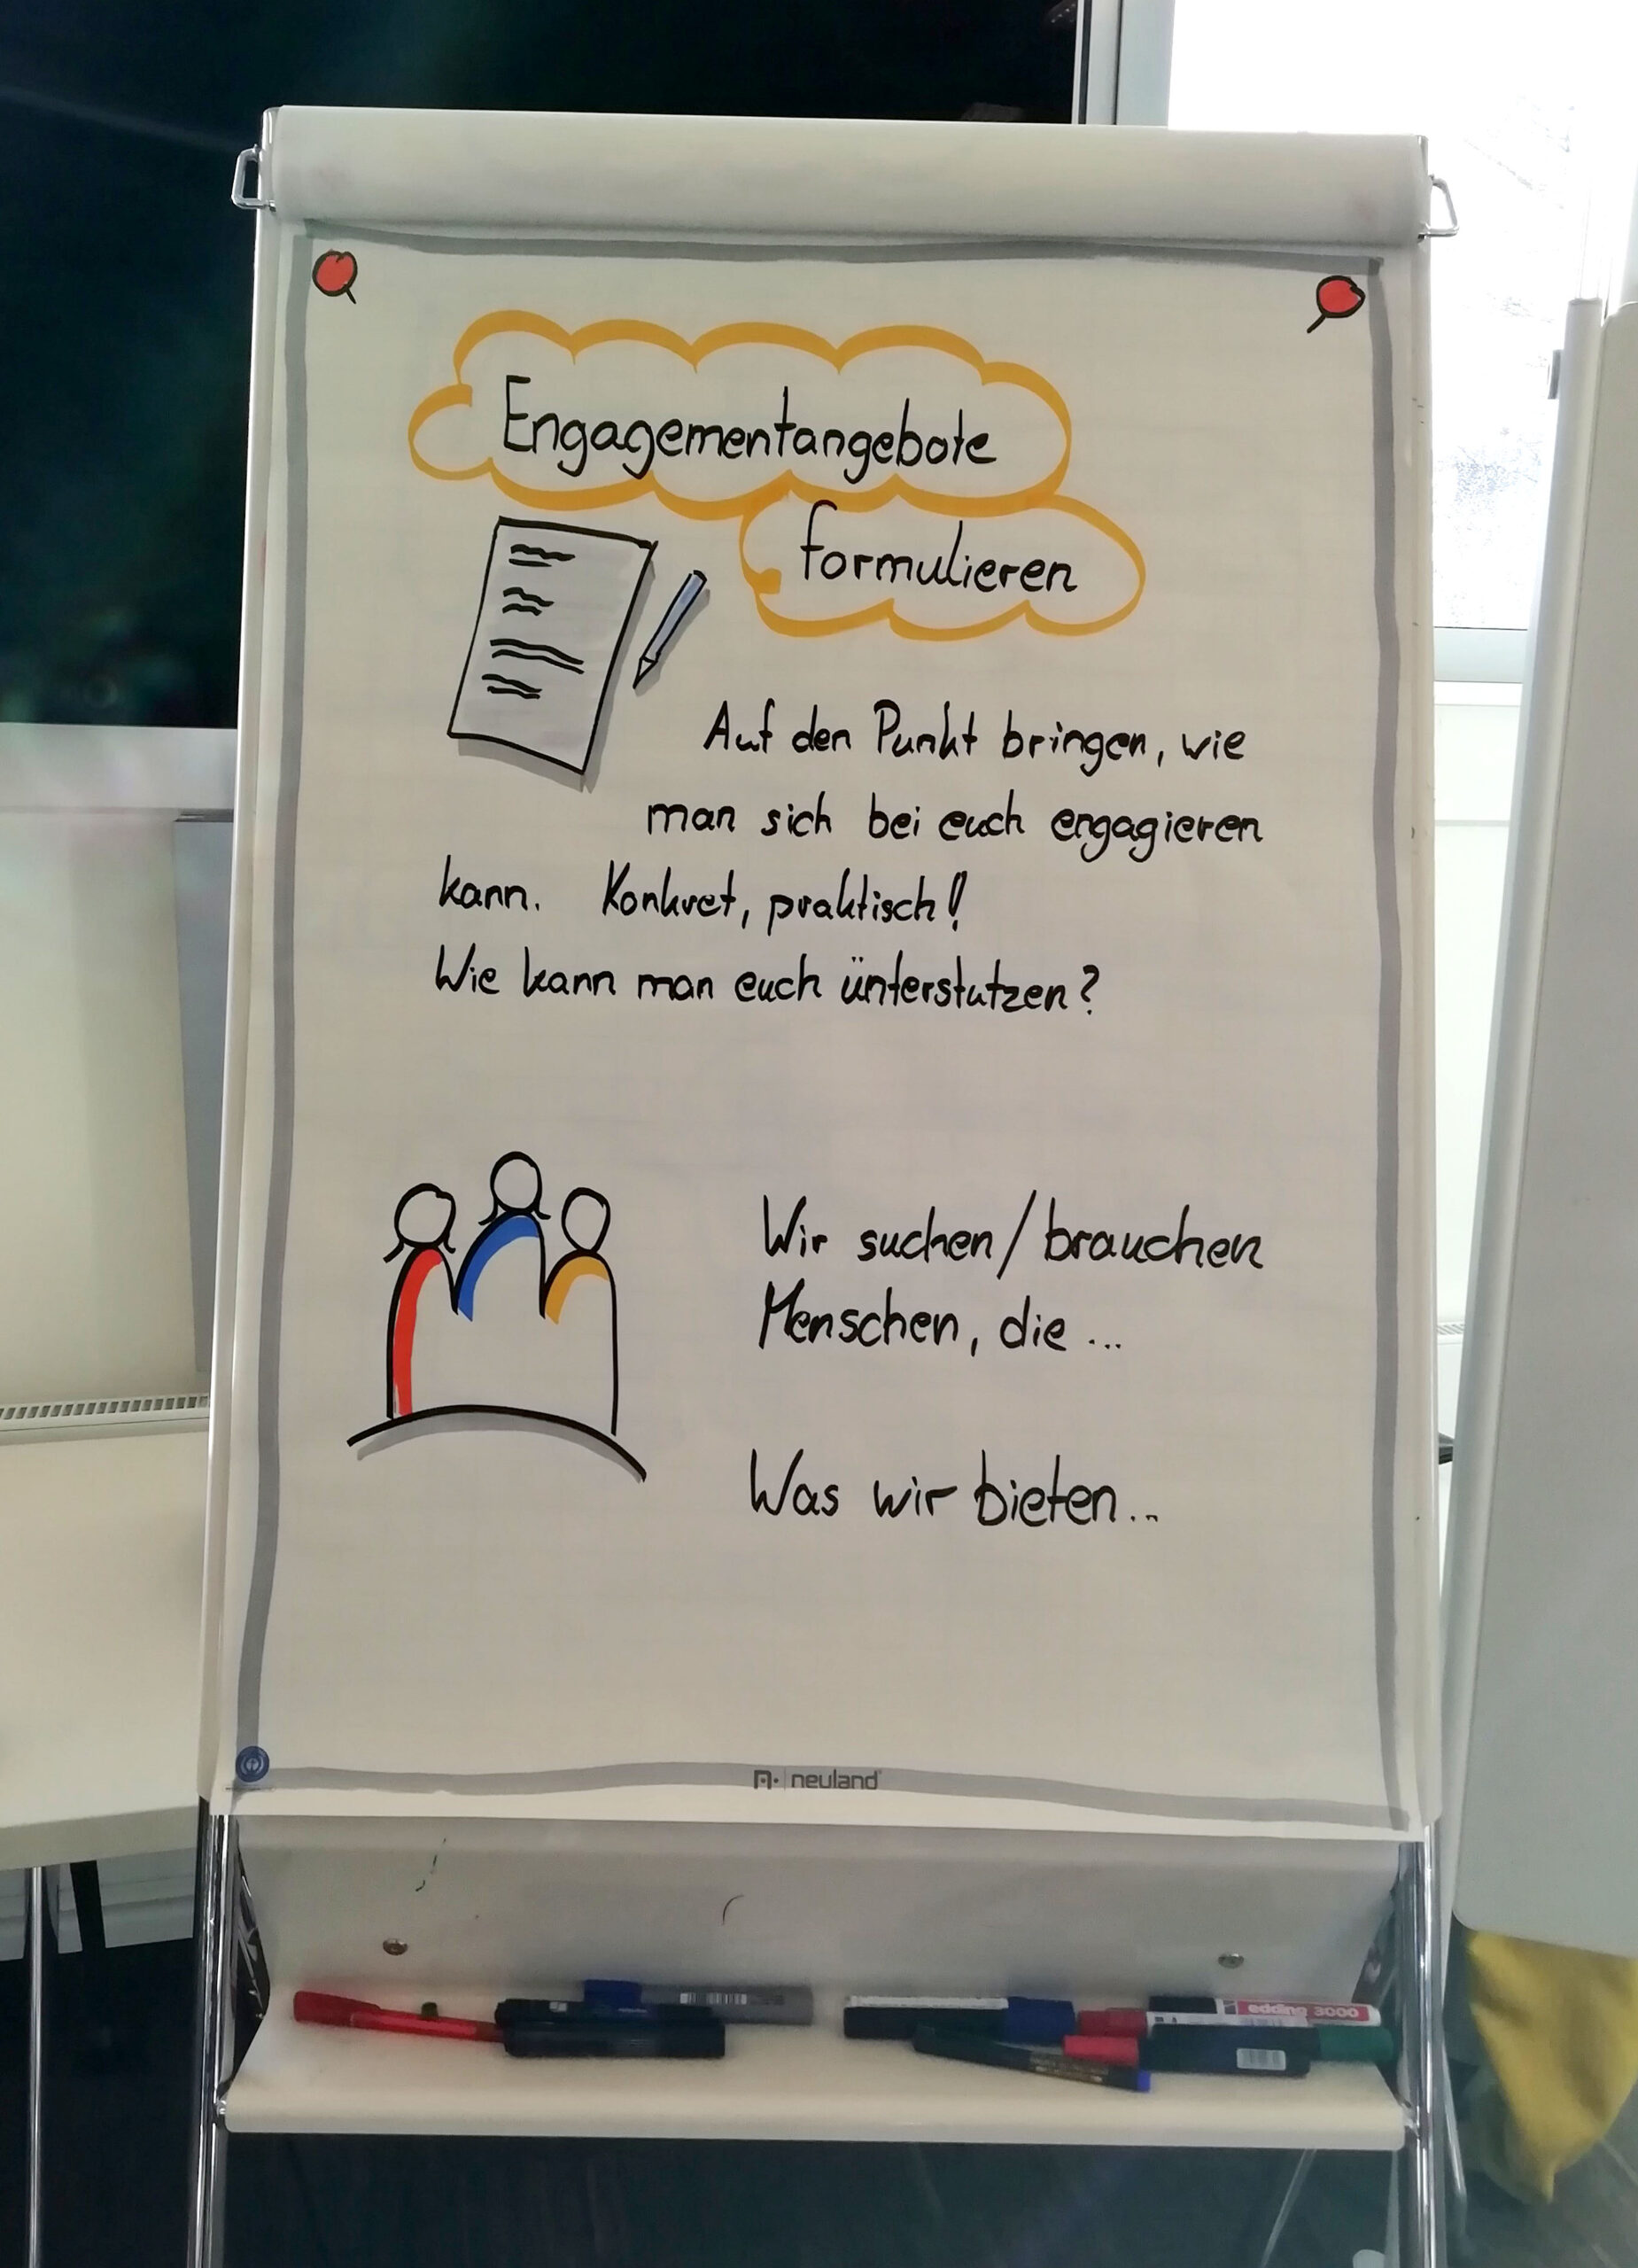 Engagementangebote
formulieren
Auf den Punkt bringen, wie
man sich bei euch engagieren
kann. Konkret, praktisch!
Wie kann man euch ünterstutzen?
Wir suchen/brauchen
Menschen, die ...
Was wir bieten...
neuland
edding 3000